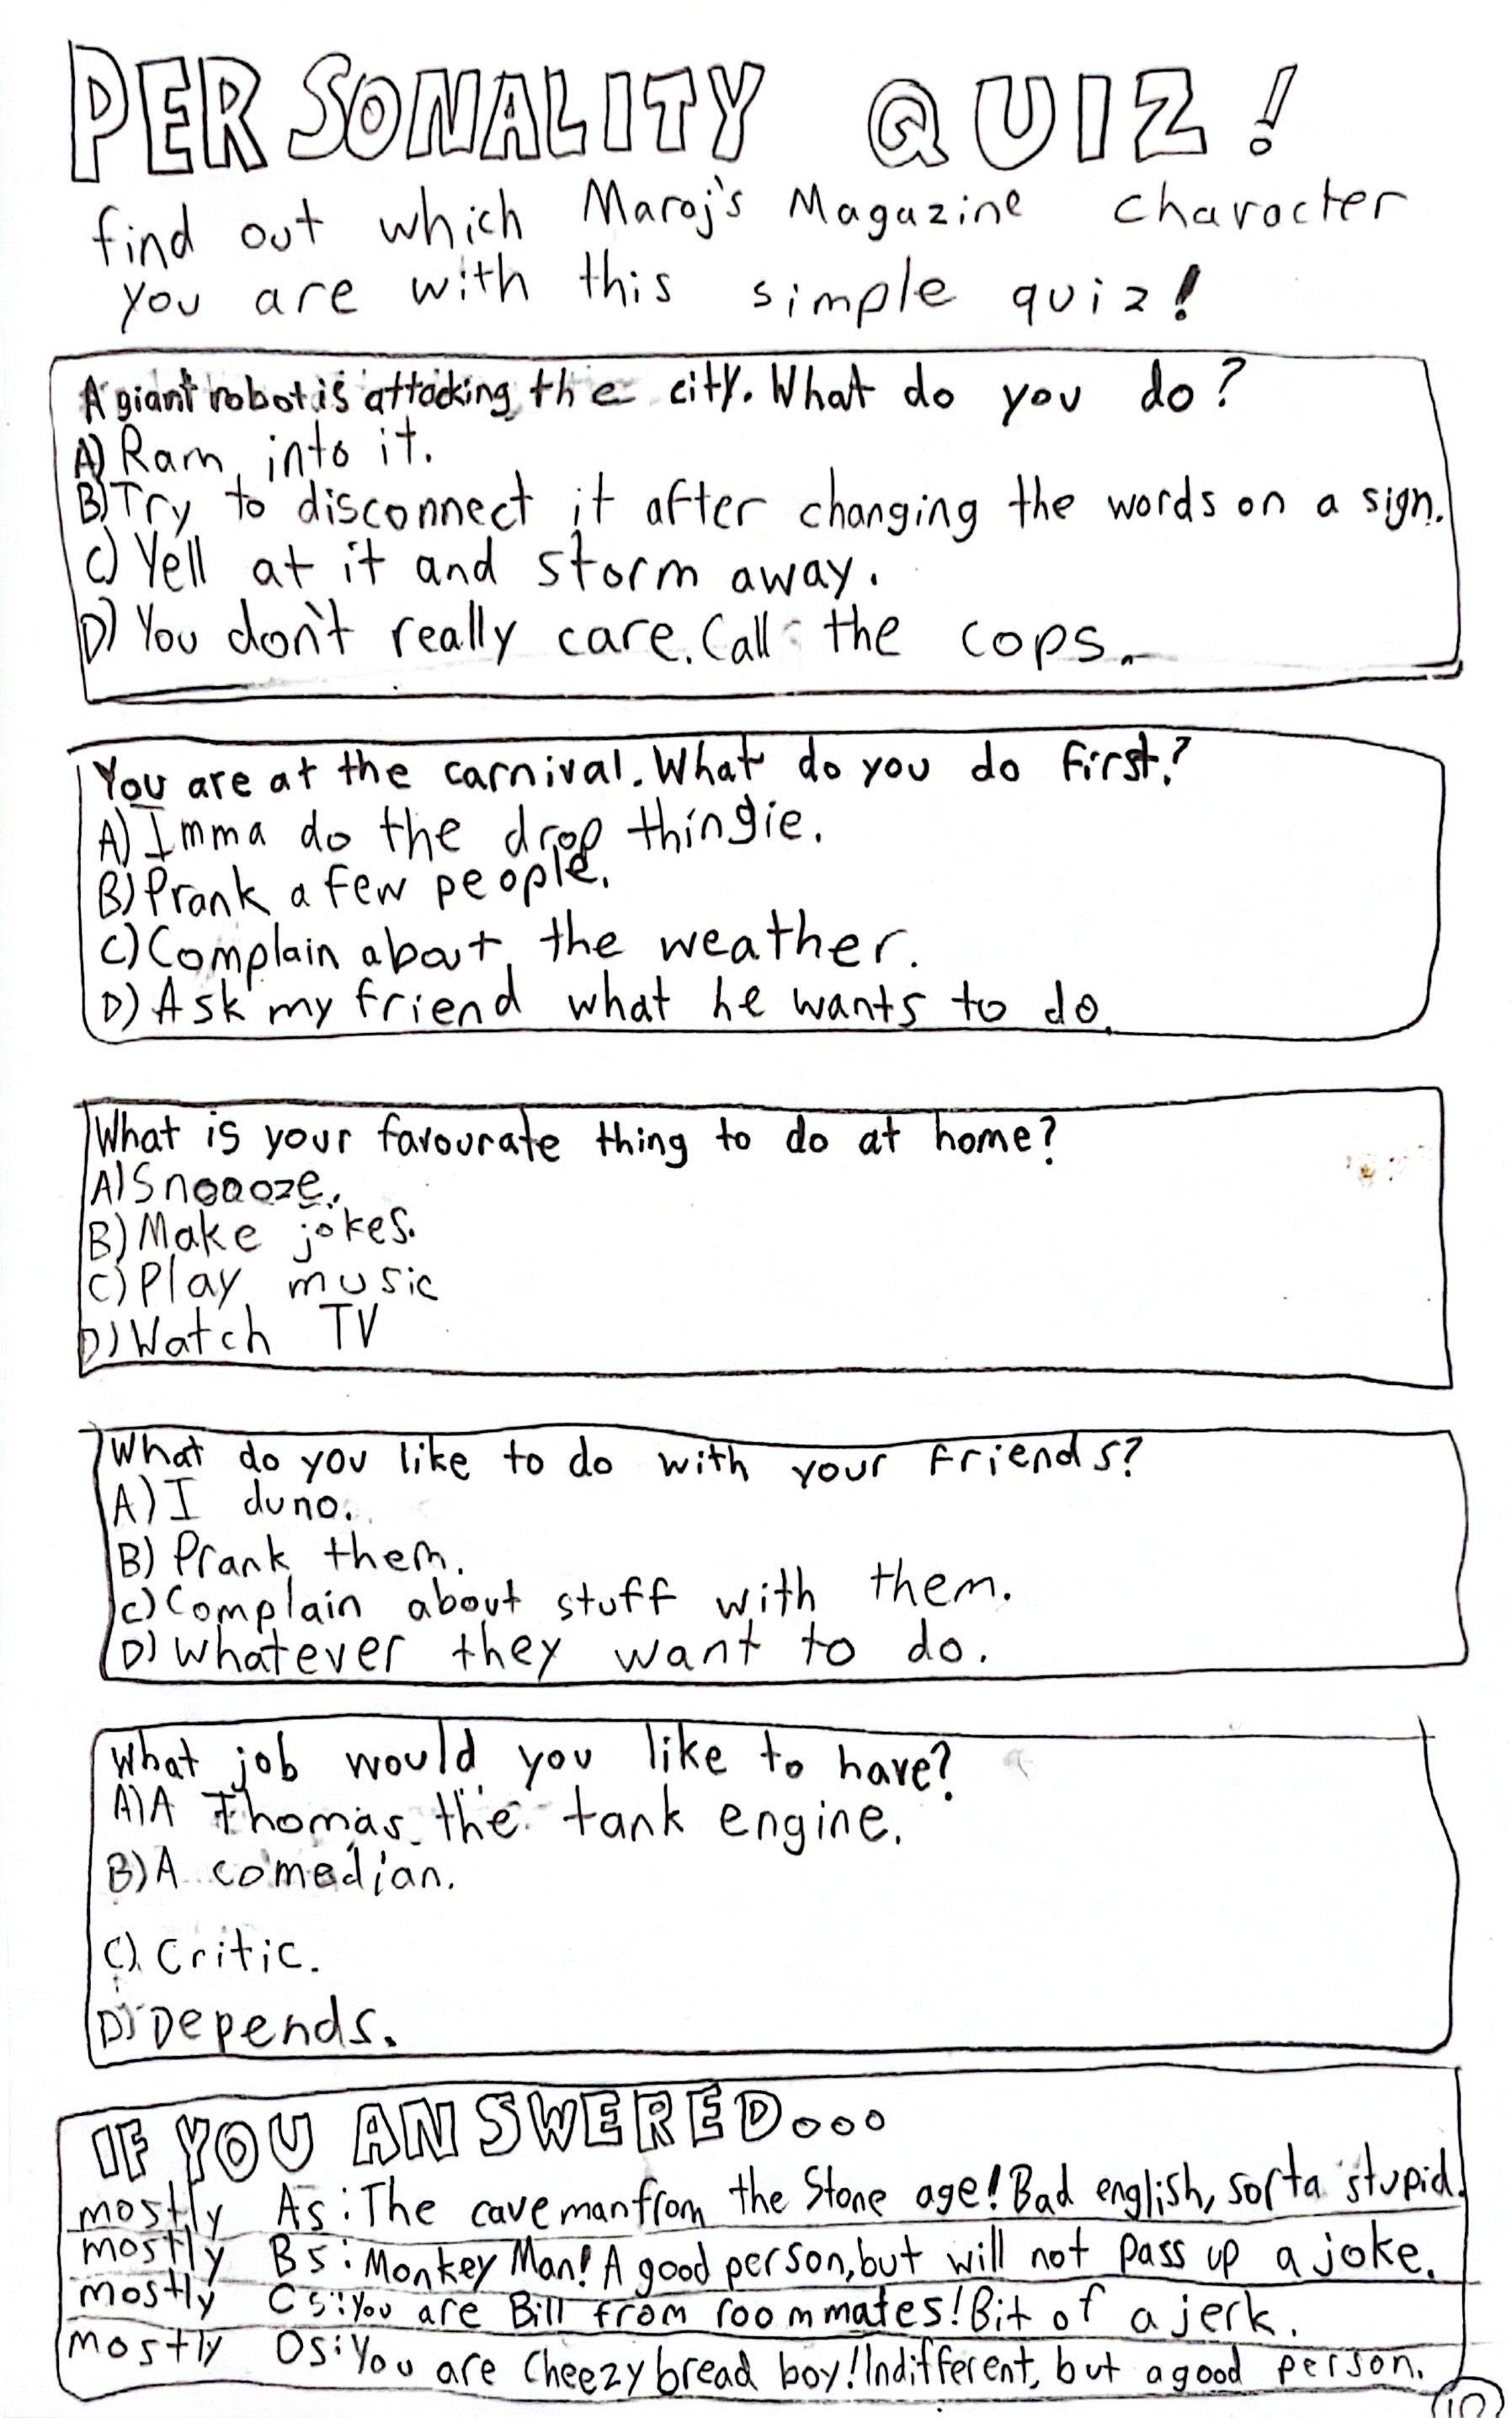 PERSONALITY QUIZ!
find out which Maroj's Magazine character
you are with this simple quiz!
A giant robot is attacking the city. What do you do?
A) Ram into it.
B) Try to disconnect it after changing the words on a sign.
C) Yell at it and storm away.
D) You don't really care. Call the cops.
You are at the carnival. What do you do first?
A) Imma do the drop thingie.
B) Prank a few people.
C) Complain about the weather.
D) Ask my friend what he wants to do.
What is your favourate thing to do at home?
A) Snoooze.
B) Make jokes.
C) Play music
D) Watch TV
What do you like to do with your friends?
A) I duno.
B) Prank them.
C) Complain about stuff with them.
D) Whatever they want to do.
What job would you like to have?
A) A Thomas the tank engine.
B) A comedian.
C) Critic.
D) Depends.
IF YOU ANSWERED...
mostly As: The caveman from the Stone age! Bad english, sorta stupid.
mostly Bs: Monkey Man! A good person, but will not pass up a joke.
mostly Cs: You are Bill from roommates! Bit of a jerk.
mostly Ds: You are Cheezy bread boy! Indifferent, but a good person.
10